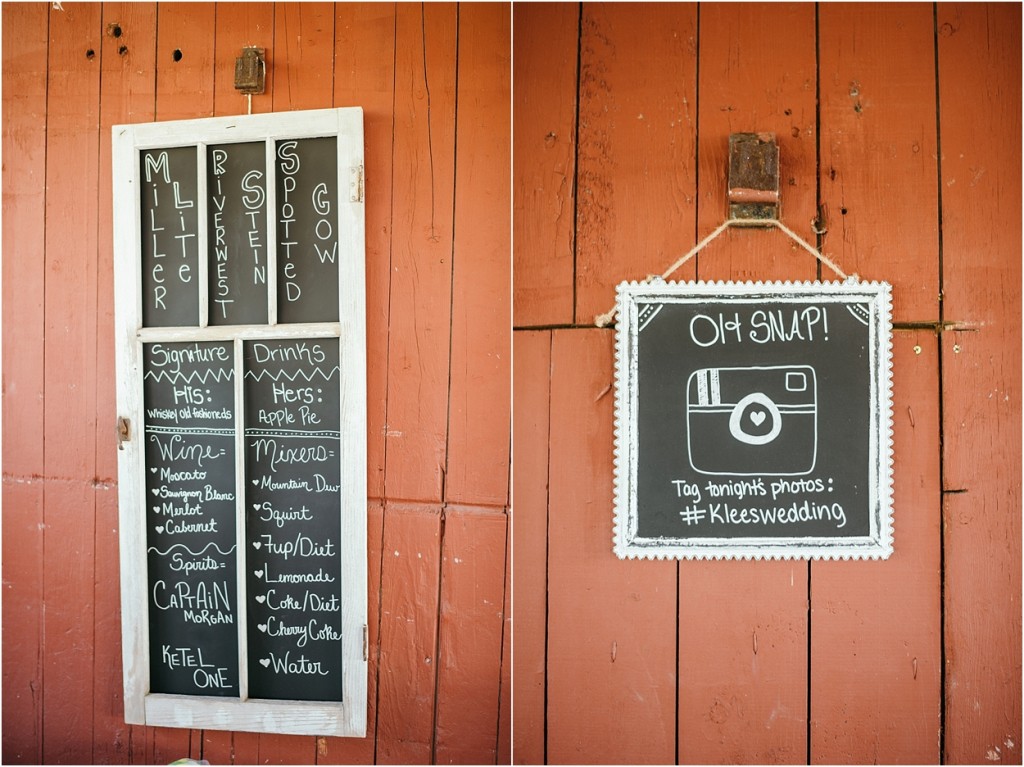 Miller
Lite
Riverwest
Stein
Spotted
Cow
Signature Drinks
His:
Whiskey Old fashioneds
Hers:
Apple Pie
Wine=
Moscato
Sauvignon Blanc
Merlot
Cabernet
Spirits=
CAPTAIN
MORGAN
KETEL
ONE
Mixers=
Mountain Dew
Squirt
7up/Diet
Lemonade
Coke/Diet
Cherry Coke
Water
OH SNAP!
Tag tonight's photos:
#Kleeswedding